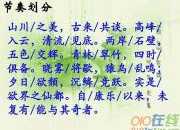 节奏划分
山川/之美，古来/共谈。高峰/
入云，清流/见底。两岸/石壁，
五色/交辉。青林/翠竹，四时/
俱备。晓雾/将歇，猿鸟/乱鸣；
夕日/欲颓，沉鳞/竞跃。实是/
欲界之仙都。自/康乐/以来，未
复有/能与其奇者。